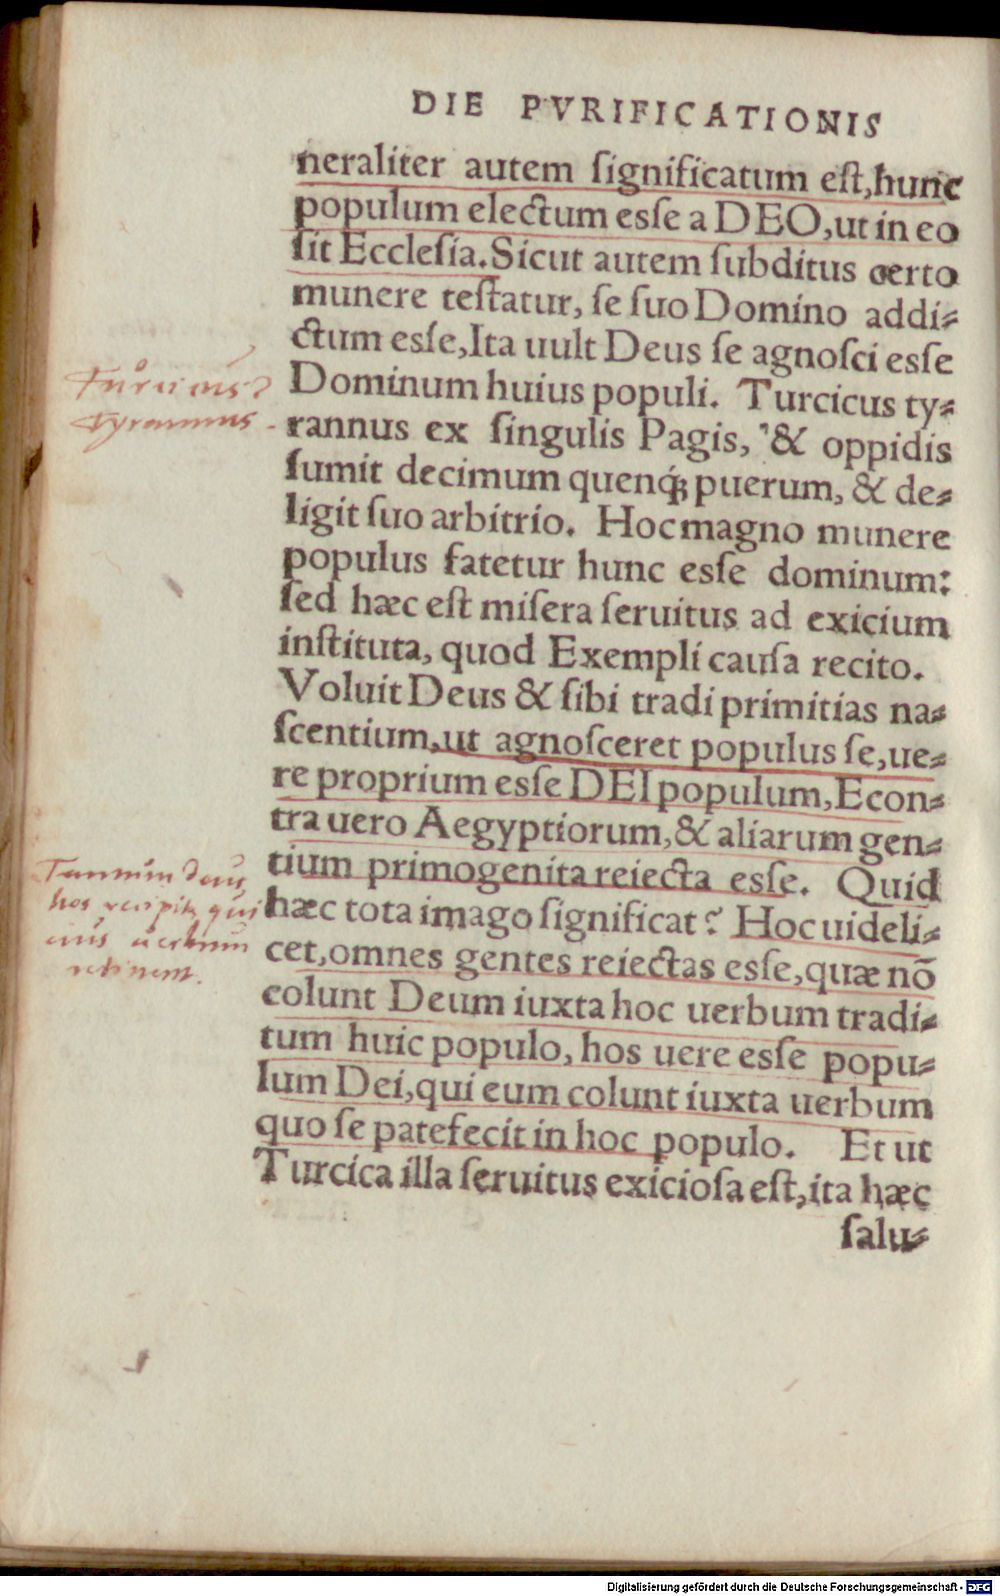 DIE PVRIFICATIONIS
neraliter autem ſignificatum eſt, hunc
populum electum eſse a DEO, ut in eo
ſit Eccleſia. Sicut autem ſubditus certo
munere teſtatur, ſe ſuo Domino addi⸗
ctum eſse, Ita uult Deus ſe agnoſci eſse
Dominum huius populi. Turcicus ty⸗
Turcicus
Tyrannus
rannus ex ſingulis Pagis, & oppidis
ſumit decimum quenq́; puerum, & de⸗
ligit ſuo arbitrio. Hoc magno munere
populus fatetur hunc eſse dominum:
ſed hæc eſt miſera ſeruitus ad exicium
inſtituta, quod Exempli cauſa recito.
Voluit Deus & ſibi tradi primitias na⸗
ſcentium, ut agnoſceret populus ſe, ue⸗
re proprium eſse DEI populum, Econ⸗
tra uero Aegyptiorum, & aliarum gen⸗
tium primogenita reiecta eſse. Quid
Deus
hos recipit qui
eius uerbum
retinent.
hæc tota imago ſignificat? Hoc uideli⸗
cet, omnes gentes reiectas eſse, quæ nō
colunt Deum iuxta hoc uerbum tradi⸗
tum huic populo, hos uere eſse popu⸗
lum Dei, qui eum colunt iuxta uerbum
quo ſe patefecit in hoc populo. Et ut
Turcica illa ſeruitus exicioſa eſt, ita hæc
ſalu⸗
Digitalisierung gefördert durch die Deutsche Forschungsgemeinschaft - DFG